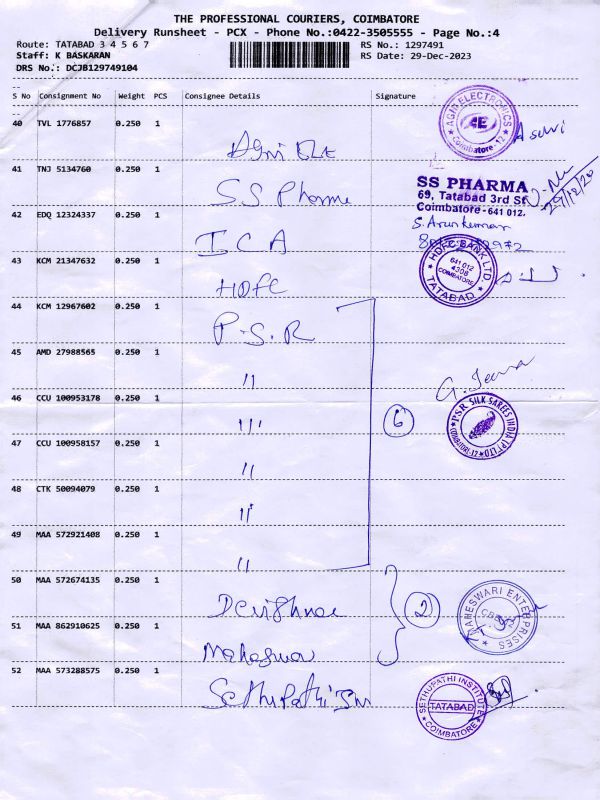 THE PROFESSIONAL COURIERS, COIMBATORE
Delivery Runsheet - PCX - Phone No.:0422-3505555 - Page No.:4
Route: TATABAD 3 4 5 6 7 RS No.: 1297491
Staff: K BASKARAN RS Date: 29-Dec-2023
DRS No.: DCJB129749104
S No Consignment No Weight PCS Consignee Details Signature
40 TVL 1776857 0.250 1
AGNI ELECTRONICS
AE
Coimbatore-12
Agni Ele
41 TNJ 5134760 0.250 1
SS Pharma
SS PHARMA
69, Tatabad 3rd St
Coimbatore-641 012.
29/12/20
S. Arunkumar
42 EDQ 12324337 0.250 1
ICA
43 KCM 21347632 0.250 1
HDFC BANK LTD.
641 012
4308
COIMBATORE
TATABAD
HDFC
44 KCM 12967602 0.250 1
P.S.R
45 AMD 27988565 0.250 1
"
46 CCU 100953178 0.250 1
"
6
G. Jeeva
P.S.R. SILK SAREES INDIA (P) LTD
COIMBATORE-12
47 CCU 100958157 0.250 1
"
48 CTK 50094079 0.250 1
"
49 MAA 572921408 0.250 1
"
50 MAA 572674135 0.250 1
2
MAHESWARI ENTERPRISES
51 MAA 862910625 0.250 1
52 MAA 573288575 0.250 1
SETHUPATHI INSTITUTE
TATABAD
COIMBATORE